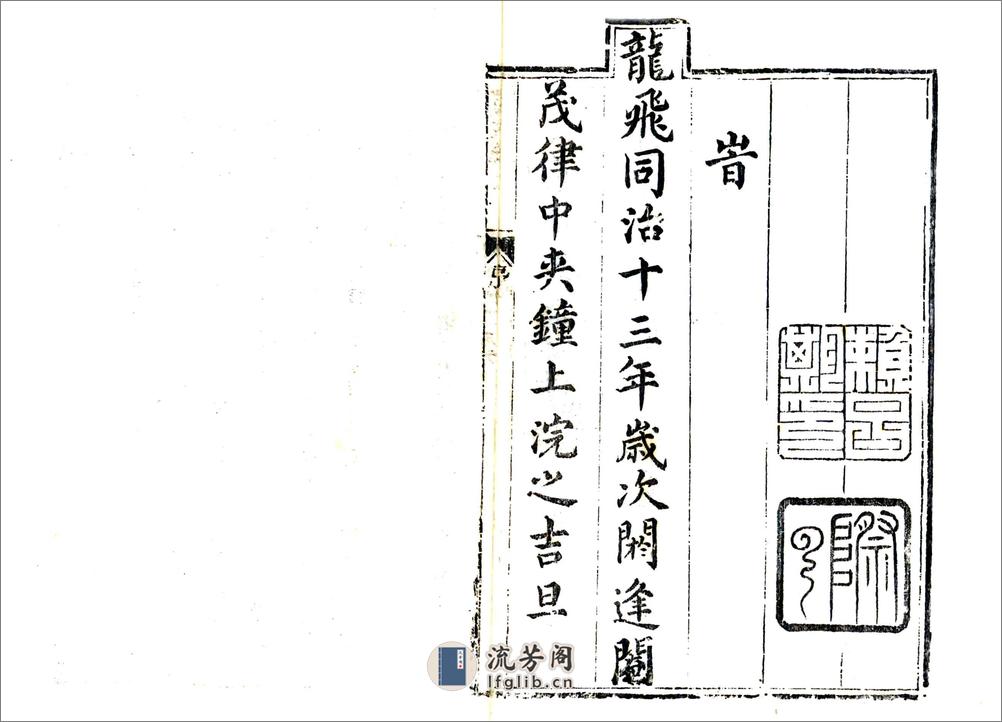 旹
龍飛同治十三年歲次閼逢閹
茂律中夾鐘上浣之吉旦
序
流芳阁
lfglib.cn